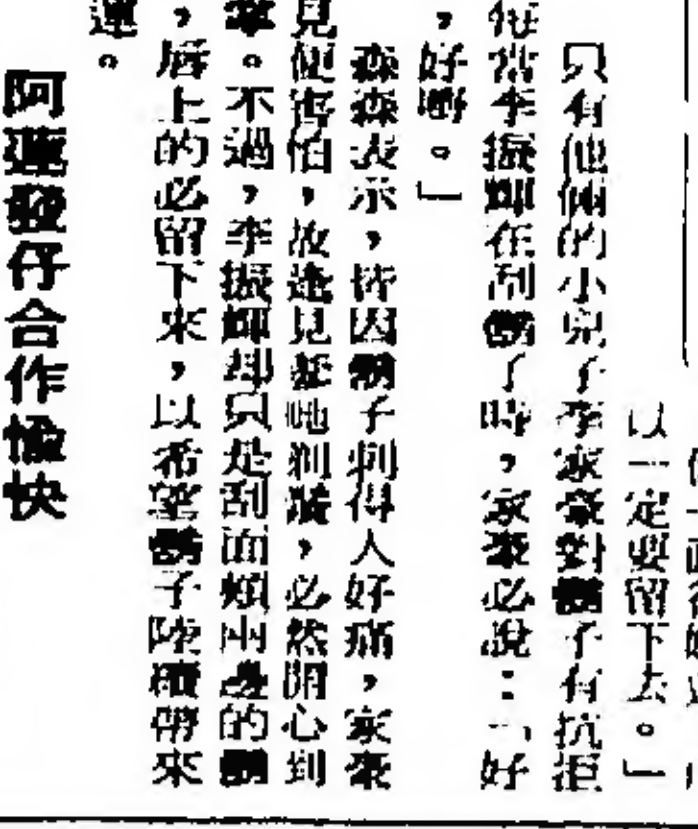 以一定要留下去。」
只有他倆的小兒子李家豪對鬍子有抗拒
每當李振輝在刮鬍了時，家豪必說：「好
，好嘢。」
森森表示，皆因鬍子刺得人好痛，家豪
見便害怕，故逢見爹哋剃鬚，必然開心到
。不過，李振輝却只是刮面頰兩邊的鬍
，唇上的必留下來，以希望鬍子陸續帶來
運。
阿蓮發仔合作愉快